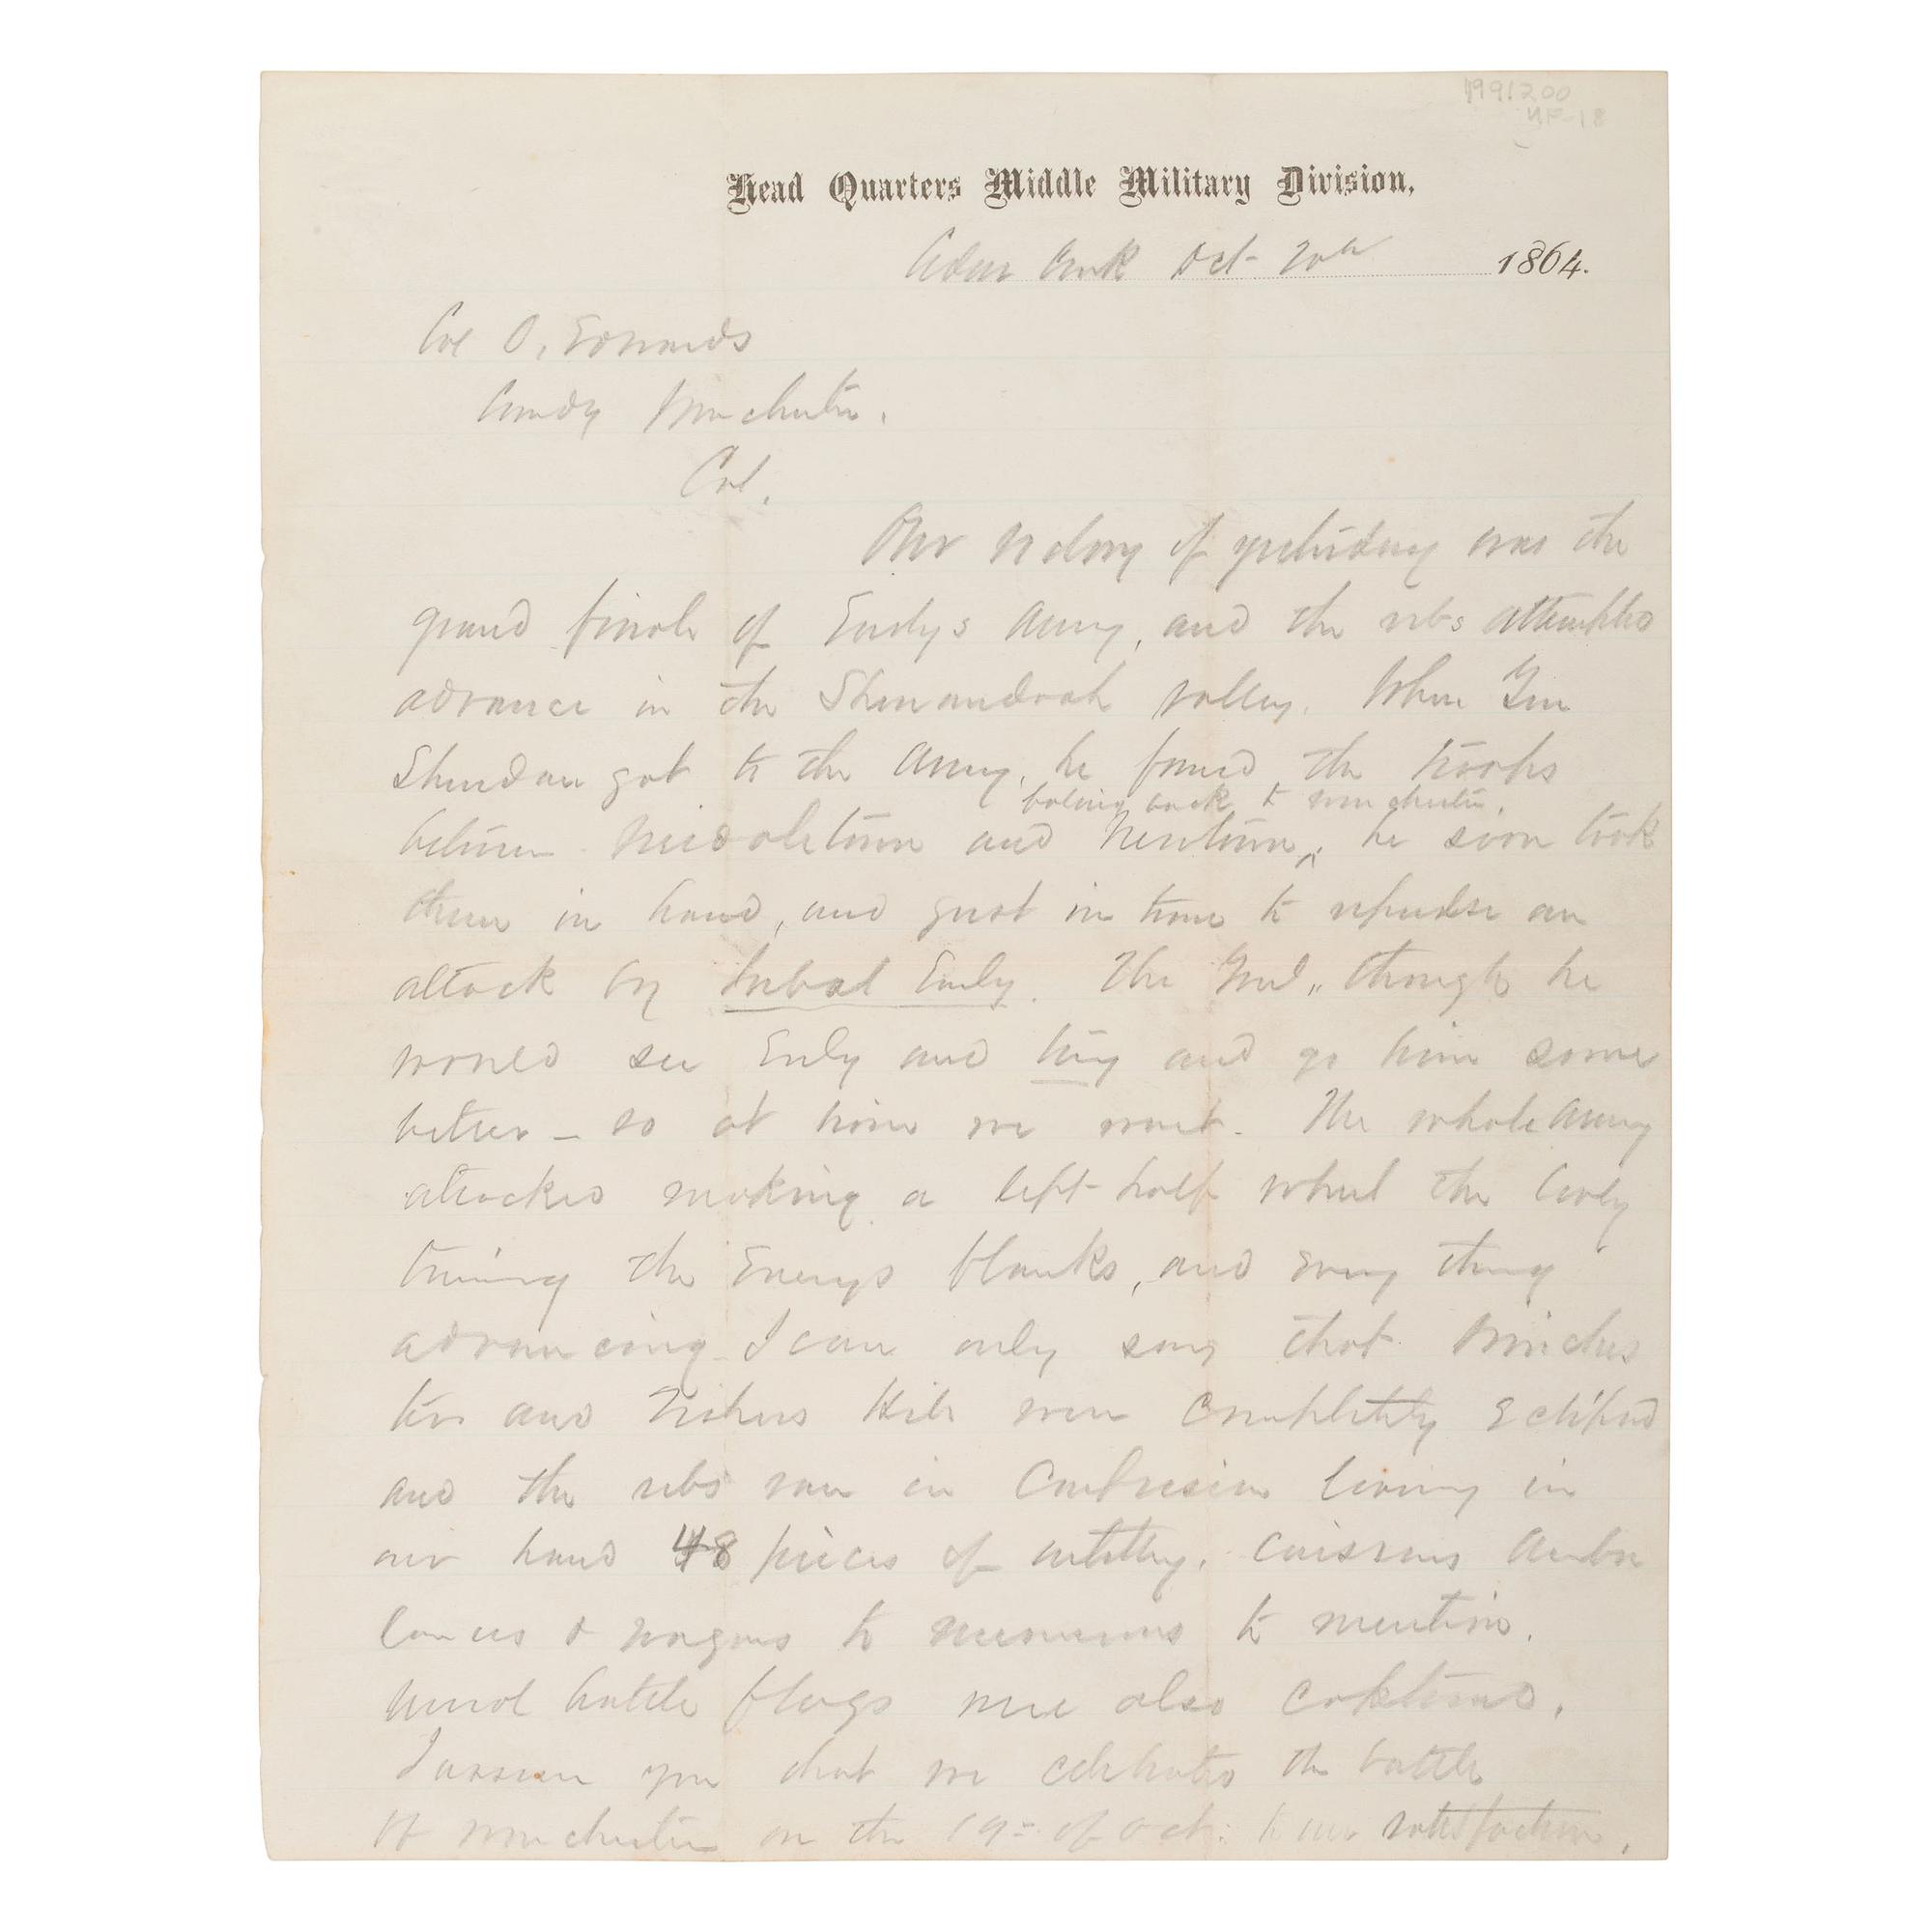 1991200
NF-18
Head Quarters Middle Military Division,
Cedar Creek Oct 20th 1864.
Col O. Edwards
Comdg Winchester.
Col.
Our victory of yesterday was the
grand finale of Earlys Army, and the rebs attempted
advance in the Shenandoah valley. When Gen
Sheridan got to the Army, he found the troops
back to winchester.
between Middletown and Newtown, he soon took
them in hand, and just in time to repulse an
attack by Jubal Early. The Genl, thought he
would see Early and try and go him some
better - so at him we went. The whole Army
attacked making a left half wheel the Cavly
turning the Enemys flanks, and every thing
advancing I can only say that Winches
ter and Fishers Hill were completely Eclipsed
and the rebs ran in Confusion leaving in
our hand 48 pieces of artillery, Caissons Ambu
lances & wagons to numerous to mention.
battle flags were also captured.
I assure you that we celebrated the battle
of winchester on the 19= of Oct: to our satisfaction,